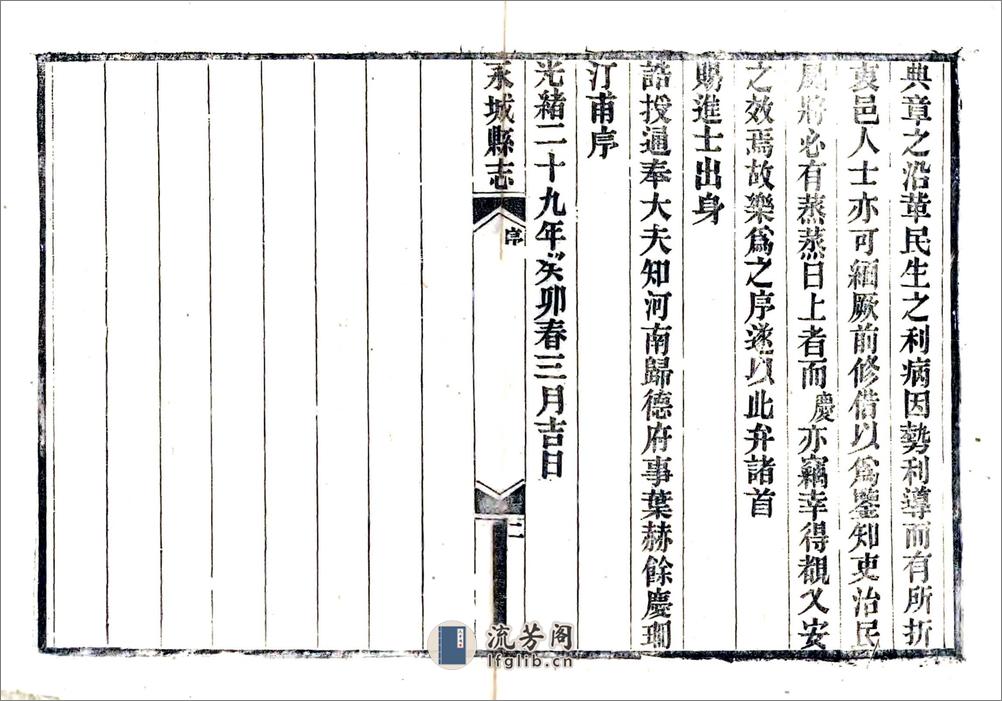 典章之沿革民生之利病因勢利導而有所折
衷邑人士亦可緬厥前修借以爲鑒知吏治民
風將必有蒸蒸日上者而慶亦竊幸得觀乂安
之效焉故樂爲之序遂以此弁諸首
賜進士出身
誥授通奉大夫知河南歸德府事葉赫餘慶珊
汀甫序
光緒二十九年癸卯春三月吉日
永城縣志
序
二
流芳阁
lfglib.cn